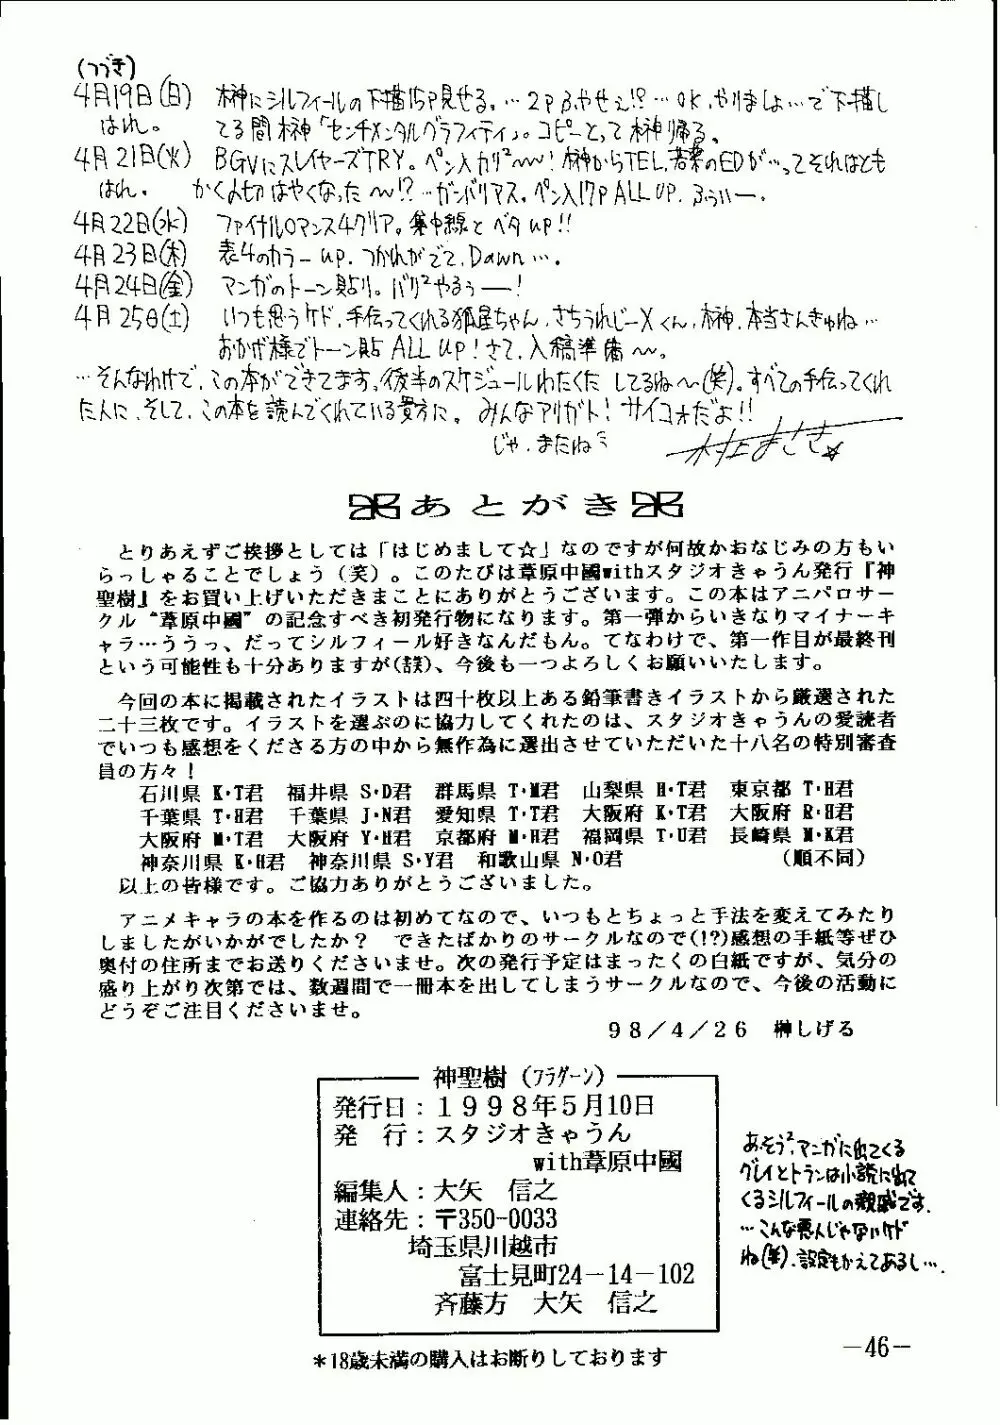 (つづき)
4月19日(日) 榊にシルフィールの下描15P見せる。…2Pふやせぇ!?…OK.やりましょ…で下描し
はれ。 てる間榊「センチメンタルグラフィティ」。コピーとって榊帰る。
4月21日(火) BGVにスレイヤーズTRY。ペン入カリ²〜〜!榊からTEL,若菜のEDが…ってそれはとも
はれ。 かく〆切はやくなった〜〜!?…ガンバリアス。ペン入17P ALL UP. ふぅぃー.
4月22日(水) ファイナルロマンス4クリア。集中線とベタup!!
4月23日(木) 表4のカラーup. つかれがでて、Dawn….
4月24日(金) マンガのトーン貼り。バリ²やるぅ──!
4月25日(土) いつも思うケド、手伝ってくれる狐屋ちゃん、さちうれじーXくん、榊、本当さんきゅね…
おかげ様でトーン貼 ALL UP!さて、入稿準備〜。
…そんなわけで、この本ができてます。後半のスケジュールわたくた してるね〜(笑)。すべての手伝ってくれ
た人に、そして、この本を読んでくれている貴方に。 みんなアリガト! サイコォだよ!!
じゃ、またねミ
村上まさき☆
あとがき
とりあえずご挨拶としては「はじめまして☆」なのですが何故かおなじみの方もい
らっしゃることでしょう(笑)。このたびは葦原中國withスタジオきゃうん発行『神
聖樹』をお買い上げいただきまことにありがとうございます。この本はアニパロサー
クル“葦原中國”の記念すべき初発行物になります。第一弾からいきなりマイナーキ
ャラ…ううっ、だってシルフィール好きなんだもん。てなわけで、第一作目が最終刊
という可能性も十分ありますが(苦笑)、今後も一つよろしくお願いいたします。
今回の本に掲載されたイラストは四十枚以上ある鉛筆書きイラストから厳選された
二十三枚です。イラストを選ぶのに協力してくれたのは、スタジオきゃうんの愛読者
でいつも感想をくださる方の中から無作為に選出させていただいた十八名の特別審査
員の方々!
石川県 K・T君 福井県 S・D君 群馬県 T・M君 山梨県 H・T君 東京都 T・H君
千葉県 T・H君 千葉県 J・N君 愛知県 T・T君 大阪府 K・T君 大阪府 R・H君
大阪府 M・T君 大阪府 Y・H君 京都府 M・H君 福岡県 T・U君 長崎県 M・K君
神奈川県 K・H君 神奈川県 S・Y君 和歌山県 N・O君 (順不同)
以上の皆様です。ご協力ありがとうございました。
アニメキャラの本を作るのは初めてなので、いつもとちょっと手法を変えてみたり
しましたがいかがでしたか? できたばかりのサークルなので(!?)感想の手紙等ぜひ
奥付の住所までお送りくださいませ。次の発行予定はまったくの白紙ですが、気分の
盛り上がり次第では、数週間で一冊本を出してしまうサークルなので、今後の活動に
どうぞご注目くださいませ。
98/4/26 榊しげる
神聖樹(フラグーン)
発行日:1998年5月10日
発 行:スタジオきゃうん
with葦原中國
編集人:大矢 信之
連絡先:〒350-0033
埼玉県川越市
富士見町24-14-102
斉藤方 大矢 信之
*18歳未満の購入はお断りしております
あそう²、マンガに出てくる
グレイとトランは小説に出て
くるシルフィールの親戚です。
…こんな悪人じゃないケド
ね(笑)、設定もかえてあるし….
-46-